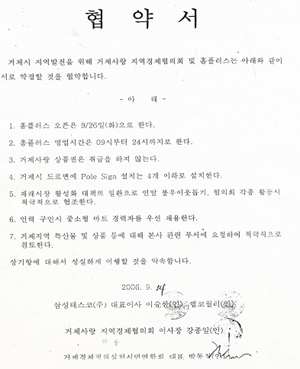 협 약 서
거제시 지역발전을 위해 거제사랑 지역경제협의회 및 홈플러스는 아래와 같이
서로 약정할 것을 협약합니다.
- 아 래 -
1. 홈플러스 오픈은 9/26일(화)으로 한다.
2. 홈플러스 영업시간은 09시부터 24시까지로 한다.
3. 거제사랑 상품권은 취급을 하지 않는다.
4. 거제시 도로변에 Pole Sign 설치는 4개 이하로 설치한다.
5. 재래시장 활성화 대책의 일환으로 연말 불우이웃돕기, 협의회 각종 활동시
적극적으로 협조한다.
6. 인력 구인시 중소형 마트 경력자를 우선 채용한다.
7. 거제지역 특산물 및 상품 등에 대해 본사 관련 부서에 요청하여 적극적으로
검토한다.
상기항에 대해서 성실하게 이행할 것을 약속합니다.
2006. 9. 14
삼성테스코(주) 대표이사
거제사랑 지역경제협의회 이사장 강종일(인)
대표